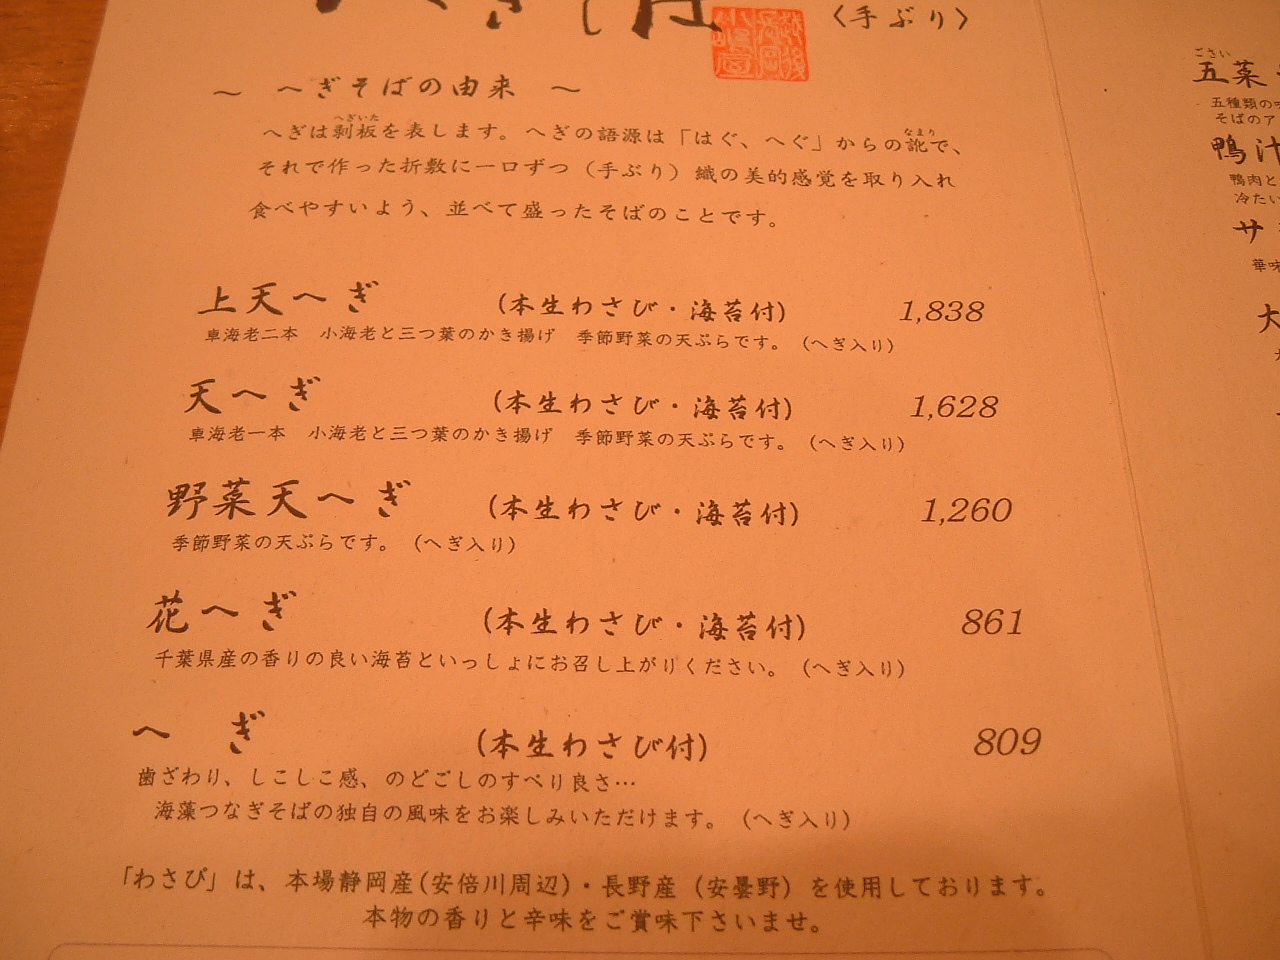 へぎそば 〈手ぶり〉
〜 へぎそばの由来 〜
へぎは剥板を表します。へぎの語源は「はぐ、へぐ」からの訛で、
それで作った折敷に一口ずつ（手ぶり）織の美的感覚を取り入れ
食べやすいよう、並べて盛ったそばのことです。
上天へぎ (本生わさび・海苔付) 1,838
車海老二本 小海老と三つ葉のかき揚げ 季節野菜の天ぷらです。（へぎ入り）
天へぎ (本生わさび・海苔付) 1,628
車海老一本 小海老と三つ葉のかき揚げ 季節野菜の天ぷらです。（へぎ入り）
野菜天へぎ (本生わさび・海苔付) 1,260
季節野菜の天ぷらです。（へぎ入り）
花へぎ (本生わさび・海苔付) 861
千葉県産の香りの良い海苔といっしょにお召し上がりください。（へぎ入り）
へぎ (本生わさび付) 809
歯ざわり、しこしこ感、のどごしのすべり良さ…
海藻つなぎそばの独自の風味をお楽しみいただけます。（へぎ入り）
「わさび」は、本場静岡産(安倍川周辺)・長野産（安曇野）を使用しております。
本物の香りと辛味をご賞味下さいませ。
五菜
五種類の
そばのア
鴨汁
鴨肉と
冷たい
サ
華味
大